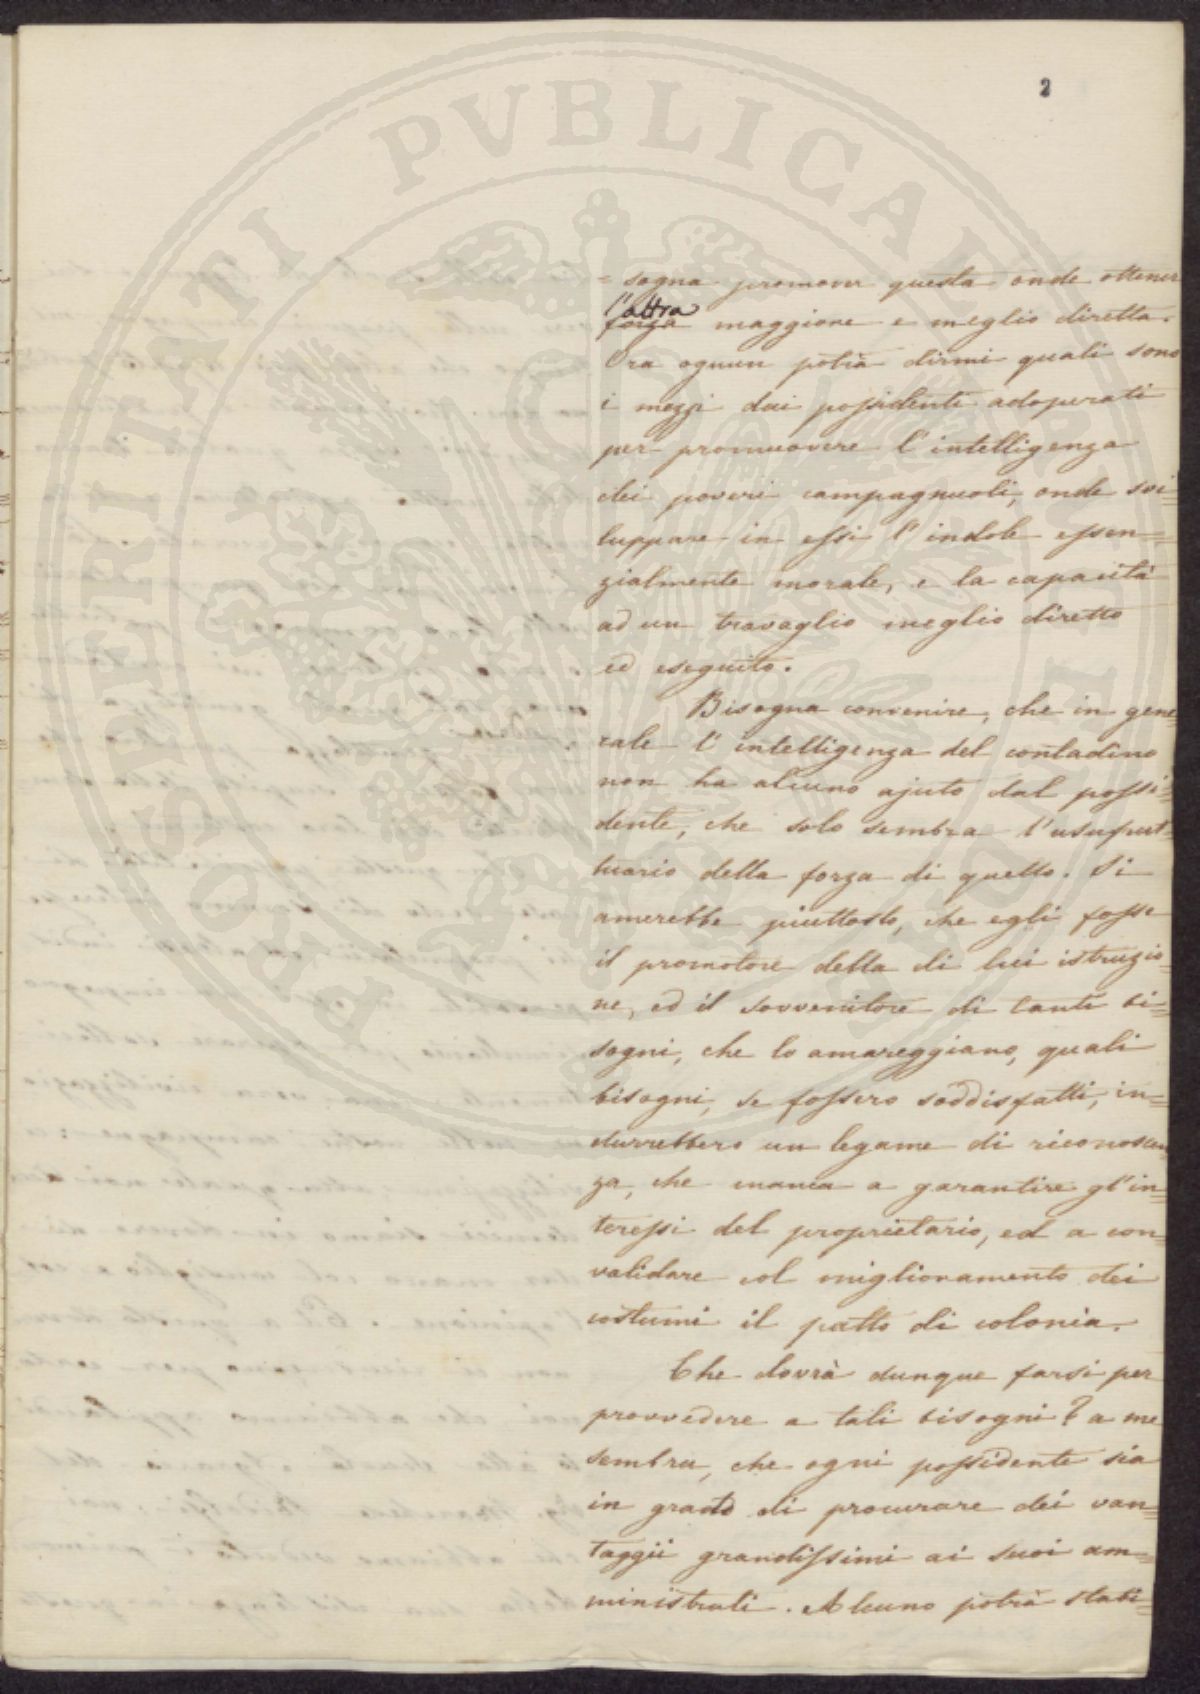 2
= sogna promover questa onde ottener
l'altra
forza maggiore e meglio diretta.
Ora ognun potrà dirmi quali sono
i mezzi dai possidenti adoperati
per promuovere l'intelligenza
dei poveri campagnuoli, onde svi=
luppare in essi l'indole essen=
zialmente morale, e la capacità
ad un travaglio meglio diretto
ed eseguito.
Bisogna convenire, che in gene
rale l'intelligenza del contadino
non ha alcuno ajuto dal possi=
dente, che solo sembra l'usufrut=
tuario della forza di quello. Si
amerebbe piuttosto, che egli fosse
il promotore della di lui istruzio=
ne, ed il sovvenitore di tanti bi=
sogni, che lo amareggiano, quali
bisogni, se fossero soddisfatti, in=
durrebbero un legame di riconoscen
za, che manca a garantire gl'in=
teressi del proprietario, ed a con=
validare col miglioramento dei
costumi il patto di colonia.
Che dovrà dunque farsi per
provvedere a tali bisogni? a me
sembra, che ogni possidente sia
in grado di procurare dei van=
taggii grandissimi ai suoi am=
ministrati. Alcuno potrà stabi=
PROSPERITATI PVBLICAE